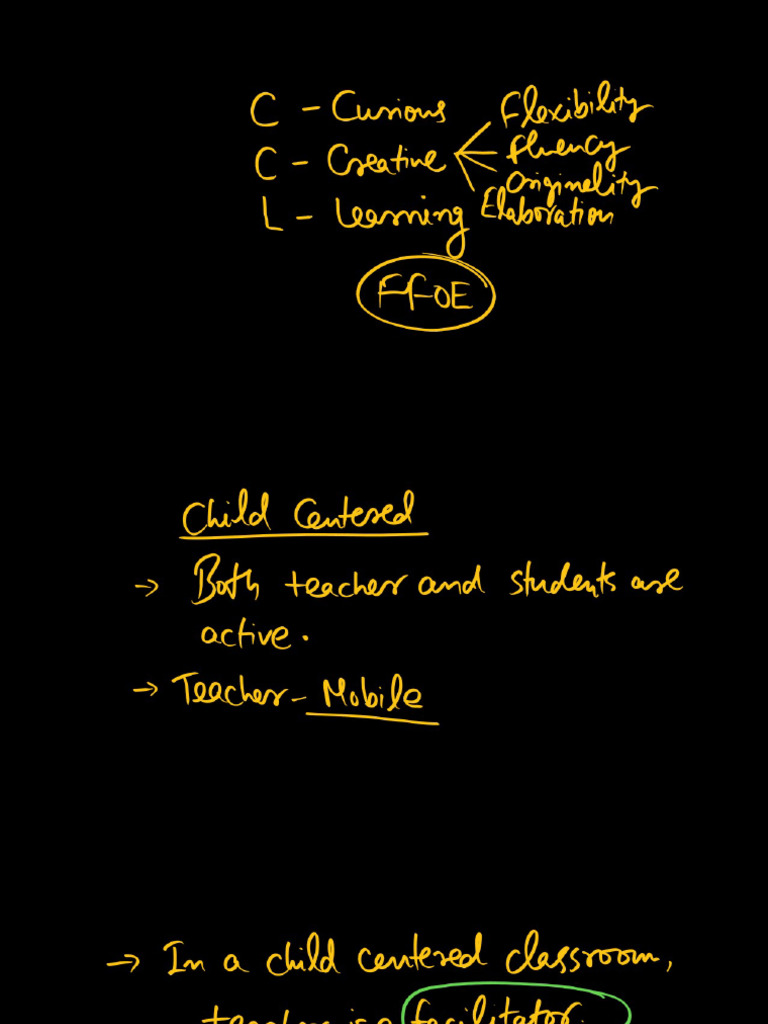 C - Curious
Flexibility
C - Creative
Fluency
Originelity
L - Learning
Elaboration
FFOE
Child Centered
→ Both teacher and students are
active.
→ Teacher - Mobile
→ In a child centered classroom,
teacher is a facilitator.